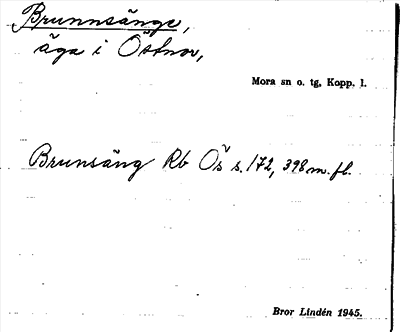 Brunnsänge,
äga i Östnor,
Mora sn o. tg, Kopp. l.
Brunsäng Rb Ös s. 172, 398 m. fl.
Bror Lindén 1945.